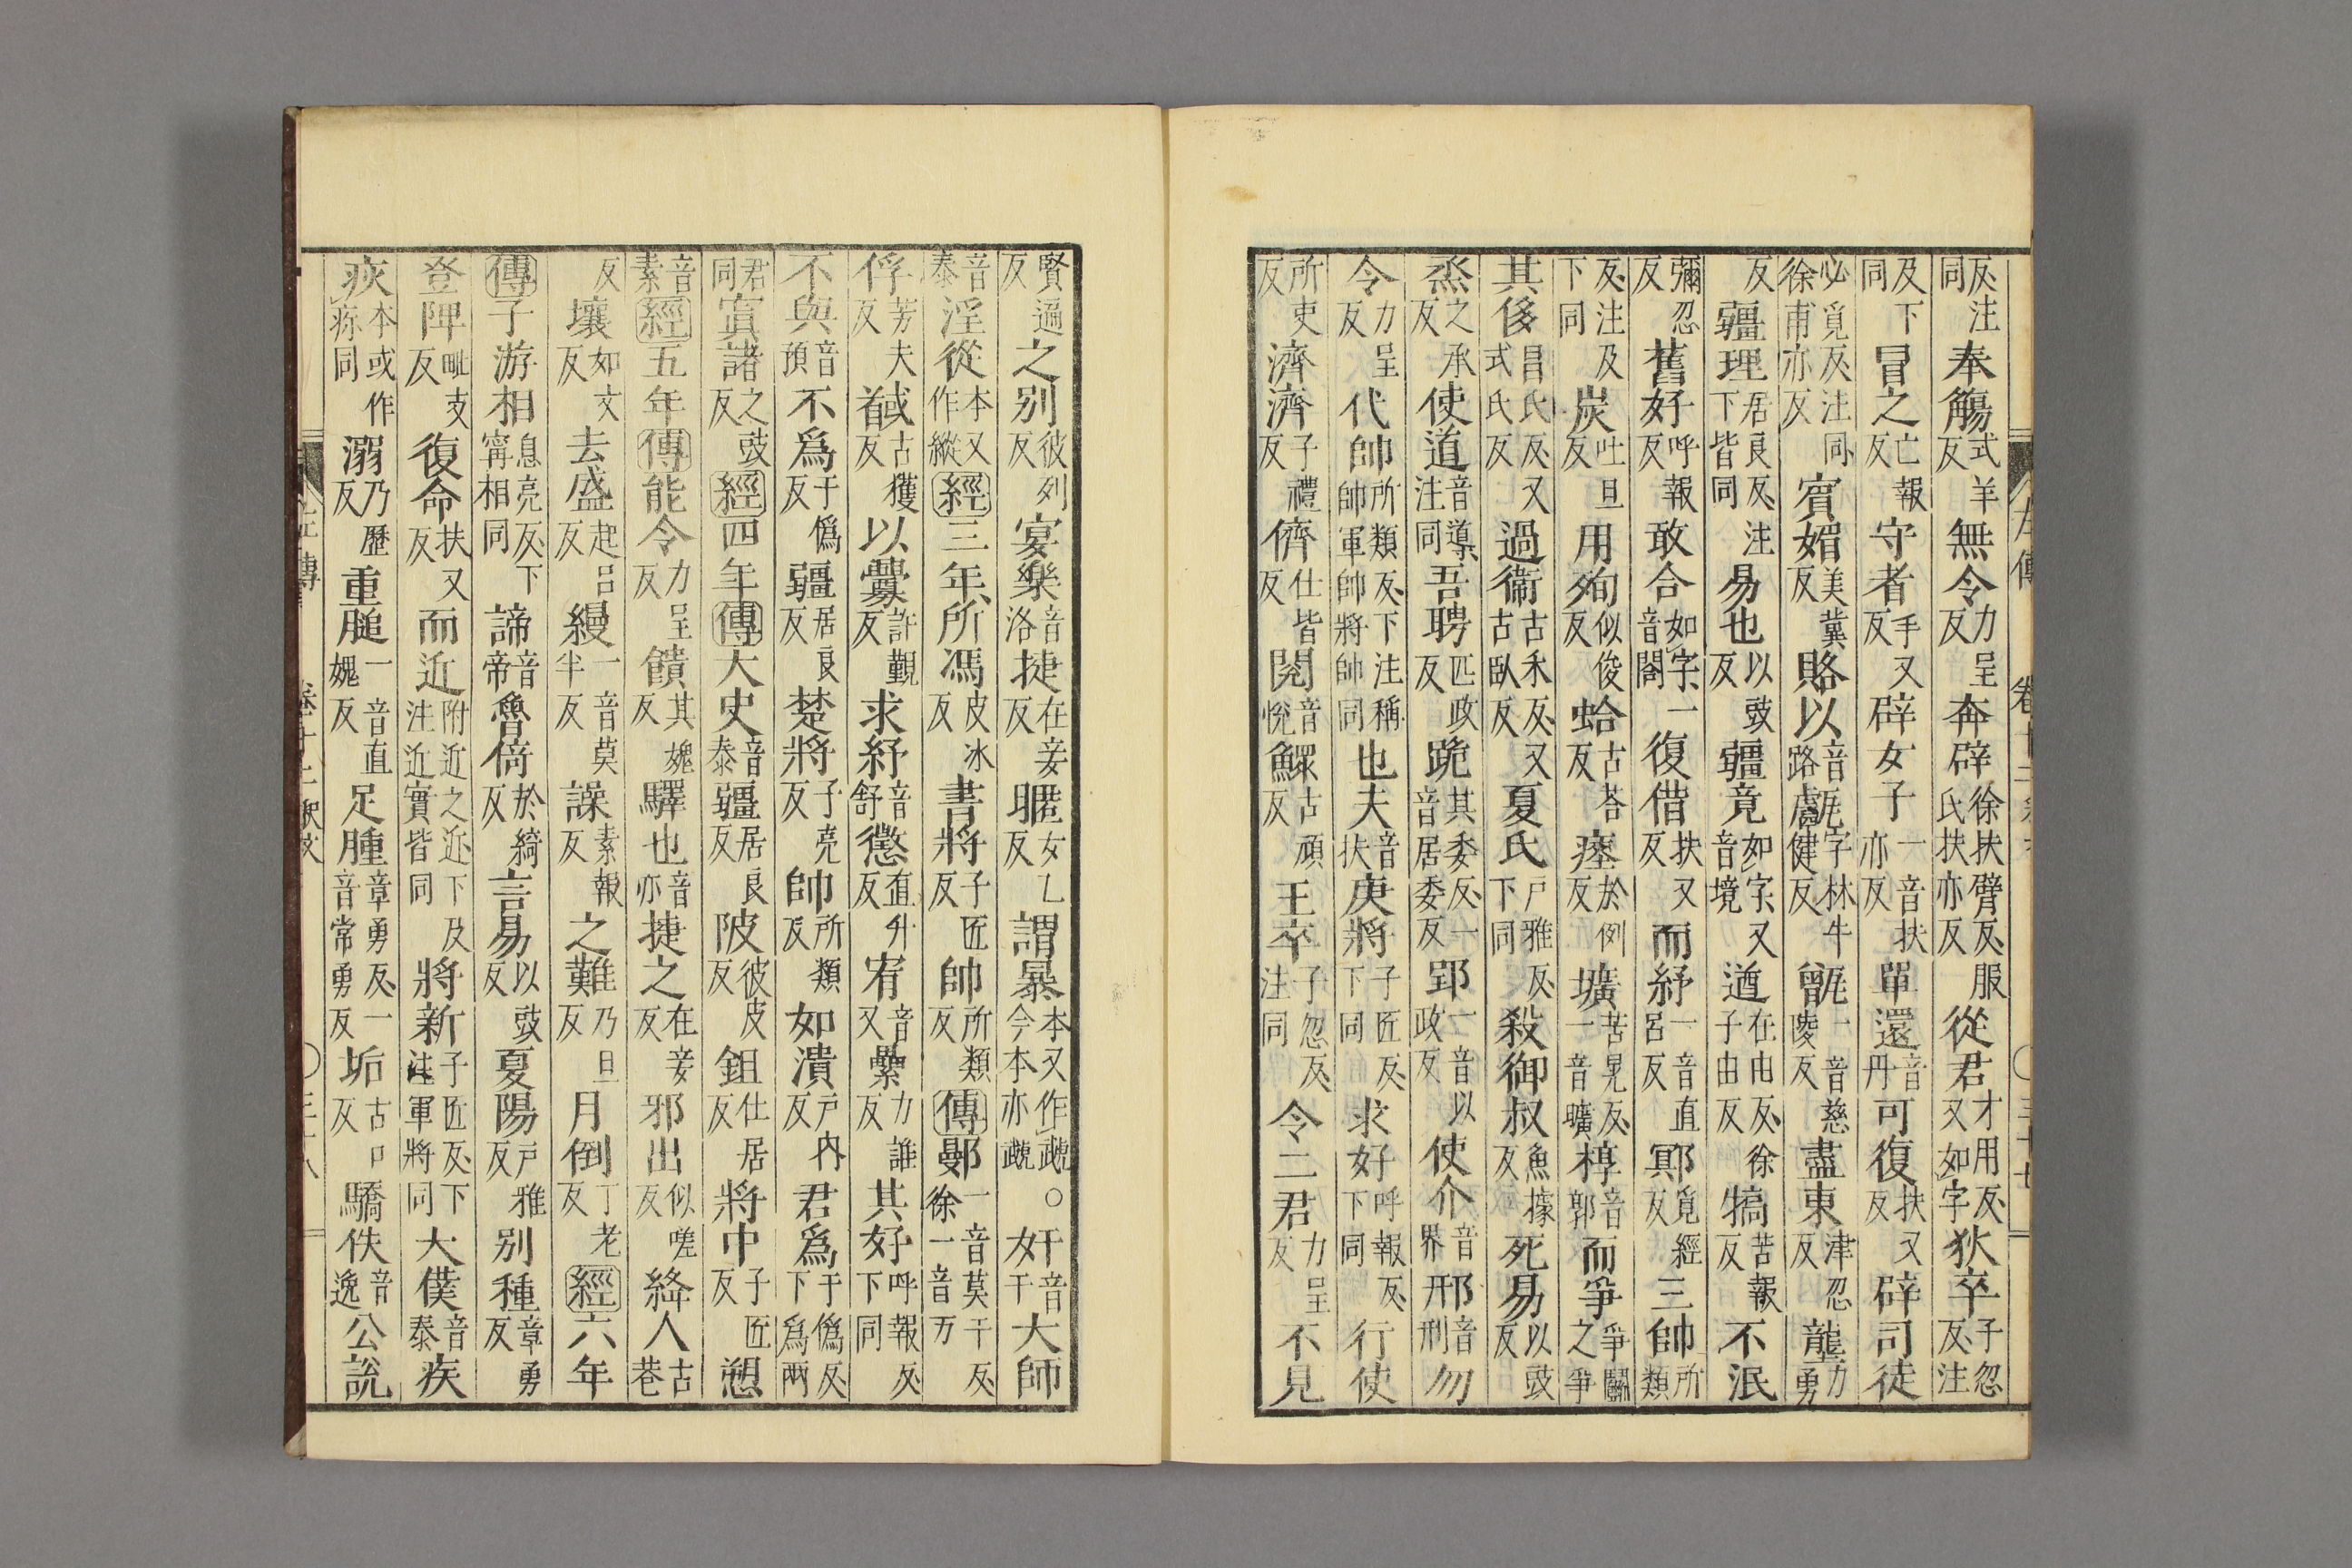 反注同奉觴式羊反無令力呈反奔辟徐扶臂反服氏扶亦反從君才用反又如字狄卒子忽反注
及下同冒之亡報反守者手又反辟女子音扶亦反一單還音丹可復扶又反辟司徒
必覓反注同徐甫亦反賓媚美冀反賂以音路甗字林牛健反甑慈陵反一音盡東津忍反壟力勇
反疆理居良反注下皆同易也以豉反疆竟如字又音境遒在由反徐子由反犒苦報反不泯
彌忍反舊好呼報反敢合如字一音閤復借扶又反而紓一音直呂反郹覓經反三帥所類
反注及下同炭吐旦反用殉似俊反蛤古荅反瘞於例反壙苦晃反一音曠椁音郭而爭爭鬬之爭
其侈昌氏反又式氏反過衞古禾反又古臥反夏氏戶雅反下同殺御叔魚據反死易以豉反
烝之承反使道音導注同吾聘匹政反跪其委反一音居委反郢一音以政反使介音界邢音刑勿
令力呈反代帥所類反下注稱帥軍帥將帥同也夫音扶庚將子匠反下同求好呼報反下同行使
所吏反濟濟子禮反儕仕皆反閱音悅鰥古頑反王卒子忽反注同令二君力呈反不見
賢遍反之別彼列反宴樂音洛捷在妾反暱女乙反謂暴本又作虣今本亦虣○奸音干大師
音泰淫從本又作縱經三年所馮皮冰反書將子匠反帥所類反傳鄤一音莫干反徐一音万
俘芳夫反馘古獲反以釁許覲反求紓音舒懲直升反宥音又纍力誰反其好呼報反下同
不與音預不爲于僞反疆居良反楚將子亮反帥所類反如潰戶內反君爲于僞反下爲兩
君同寘諸之豉反經四年傳大史音泰疆居良反陂彼皮反鉏仕居反將中子匠反愬
音素經五年傳能令力呈反饋其媿反驛也音亦捷之在妾反邪出似嗟反絳人古巷
反壤如丈反去盛起呂反縵一音莫半反譟素報反之難乃旦反月倒丁老反經六年
傳子游相息亮反下甯相同諦音帝魯倚於綺反言易以豉反夏陽戶雅反別種章勇反
登陴毗支反復命扶又反而近附近之近下及注近實皆同將新子匠反下注軍將同大僕音泰疾
疢本或作疹同溺乃歷反重膇一音直媿反足腫章勇反一音常勇反垢古口反驕佚音逸公說